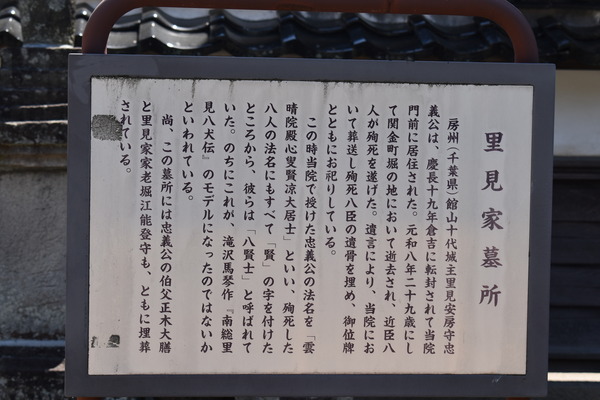 里見家墓所
房州（千葉県）館山十代城主里見安房守忠
義公は、慶長十九年倉吉に転封されて当院
門前に居住された。元和八年二十九歳にし
て関金町堀の地において逝去され、近臣八
人が殉死を遂げた。遺言により、当院にお
いて葬送し殉死八臣の遺骨を埋め、御位牌
とともにお祀りしている。
この時当院で授けた忠義公の法名を、「雲
晴院殿心叟賢凉大居士」といい、殉死した
八人の法名にもすべて「賢」の字を付けた
ところから、彼らは「八賢士」と呼ばれて
いた。のちにこれが、滝沢馬琴作『南総里
見八犬伝』のモデルになったのではないか
といわれている。
尚、この墓所には忠義公の伯父正木大膳
と里見家家老堀江能登守も、ともに埋葬
されている。